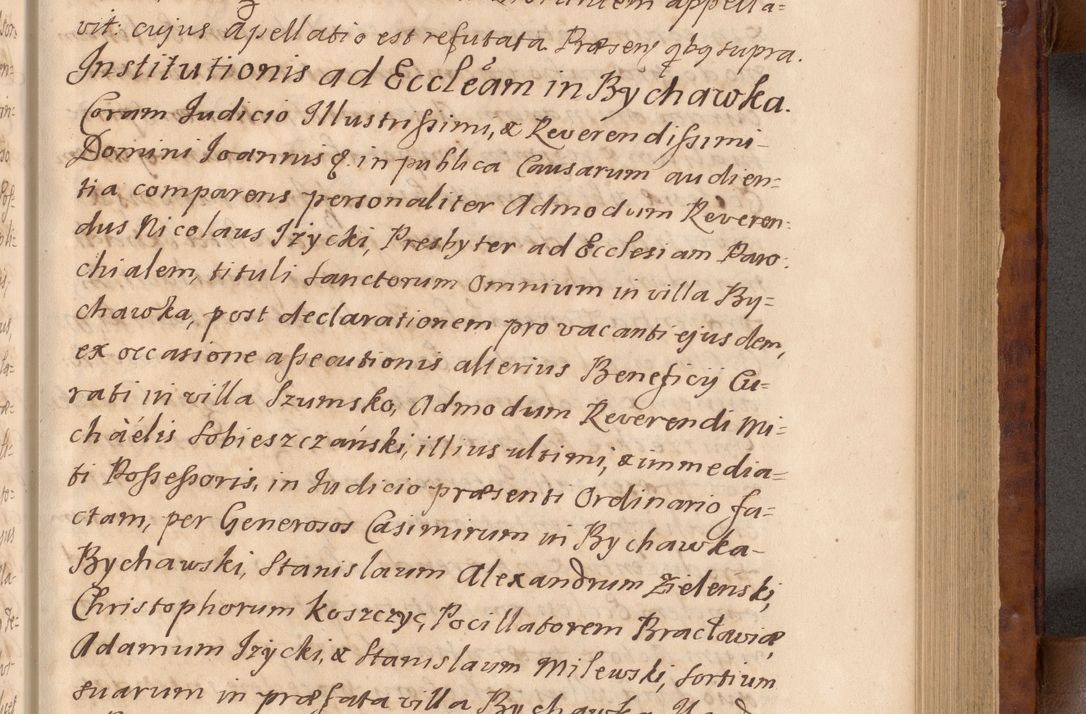 appella=
vit: cujus Apellatio est refutata Præsen. qbq supra.
Institutionis ad Eccleam in Bychawka.
Coram Judicio Illustrissimi, & Reverendissimi
Domini Joannis q. in publica Causarum audien=
tia comparens personaliter Admodum Reveren=
dus Nicolaus Jzycki, Presbyter ad Ecclesiam Paro=
chialem, tituli Sanctorum Omnium in villa By=
chawka, post declarationem pro vacanti ejusdem,
ex occasione assecutionis alterius Beneficij Cu=
rati in villa Szumsko, Admodum Reverendi Mi=
chaëlis Sobieszczański, illius ultimi, & immedia=
ti Possessoris, in Judicio præsenti Ordinario fa=
ctam, per Generosos Casimirum in Bychawka
Bychawski, Stanislaum Alexandrum Zielenski,
Christophorum Koszczyc, Pocillatorem Bracłaviæ,
Adamum Jzycki, & Stanislaum Milewski, sortium
suarum in præfata villa Bychawka